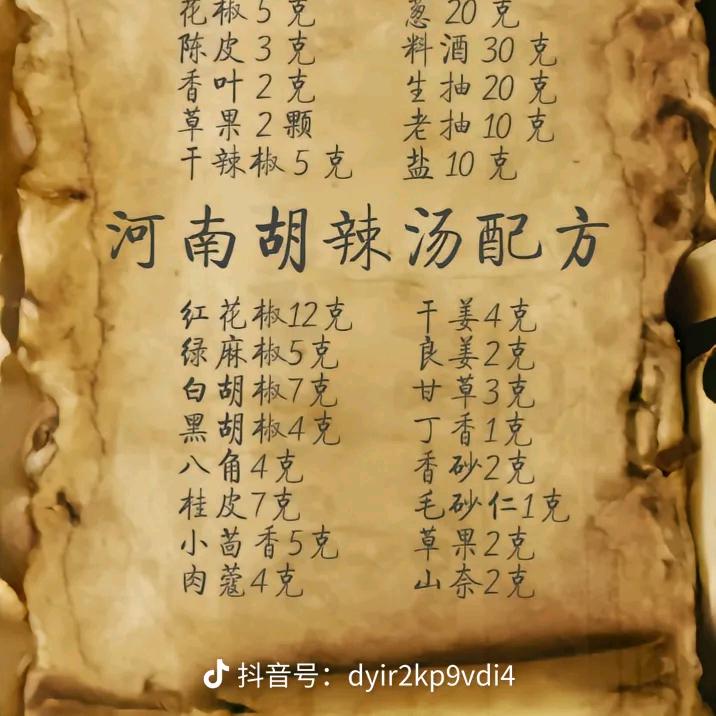 花椒5克 葱20克
陈皮3克 料酒30克
香叶2克 生抽20克
草果2颗 老抽10克
干辣椒5克 盐10克
河南胡辣汤配方
红花椒12克 干姜4克
绿麻椒5克 良姜2克
白胡椒7克 甘草3克
黑胡椒4克 丁香1克
八角4克 香砂2克
桂皮7克 毛砂仁1克
小茴香5克 草果2克
肉蔻4克 山奈2克
抖音号：dyir2kp9vdi4